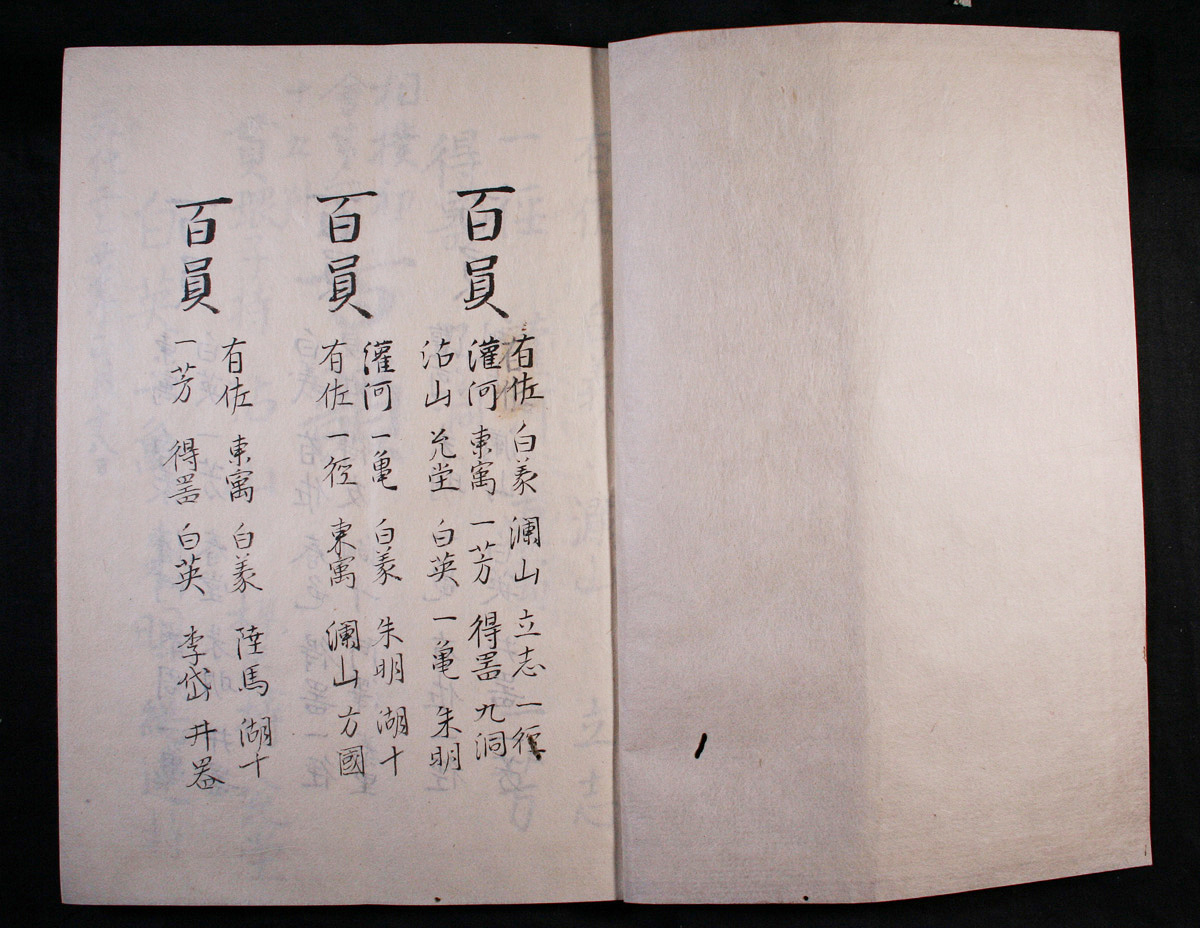 百員
有佐 白羕 瀾山 立志 一徑
灌河 東寓 一芳 得器 九洞
沾山 允堂 白英 一亀 朱明
百員
灌河 一亀 白羕 朱明 湖十
有佐 一徑 東寓 瀾山 方國
百員
有佐 東寓 白羕 陸馬 湖十
一芳 得器 白英 李岱 井器